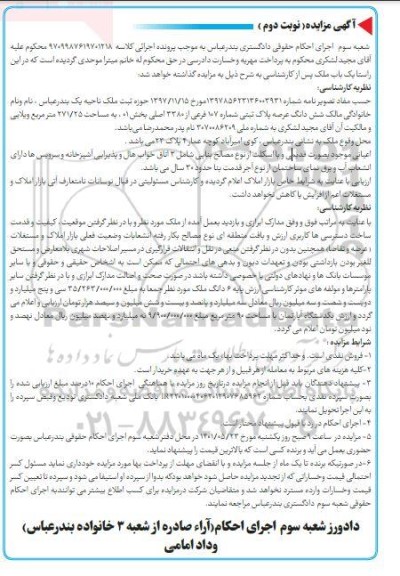 آگهی مزایده( نوبت دوم )
شعبه سوم اجرای احکام حقوقی دادگستری بندرعباس به موجب پرونده اجرائی کلاسه محکوم علیه
آقای مجید لشکری محکوم به پرداخت مهریه وخسارت دادرسی در حق محکوم له خانم میترا موحدی گردیده است که در این
راستا یک باب ملک پس از کارشناسی به شرح ذیل به مزایده گذاشته خواهد شد:
نظریه کارشناسی:
حسب مفاد تصویر نامه شماره مورخ ۱۳۹۷/۱۱/۱۵ حوزه ثبت ملک ناحیه یک بندرعباس ، نام ونام
خانوادگی مالک شش دانگ عرصه پلاک ثبتی شماره ۱۰۷ فرعی از ۳۳۸۰ اصلی بخش ۰۱ ، به مساحت ۲۷۱/۲۵ متر مربع ویلایی
و مالکیت آن آقای مجید لشکری به شماره ملی نام پدر محمدرضا می‌باشد.
محل وقوع ملک به نشانی بندرعباس، کوی امیرآباد کوچه پلاک ۲۳ می باشد .
اعیانی موجود بصورت و با اسکلت از نوع مصالح بنایی شامل ۳ اتاق خواب هال و پذیرایی آشپزخانه و سرویس ها دارای
انشعاب آب و برق نمای ساختمان از نوع آجر قدمت بنا حدود ۳۰ سال می باشد.
ارزیابی با عنایت به شرایط خاص بازار املاک اعلام گردیده و کارشناس مسئولیتی در قبال نوسانات نامتعارف آتی بازار املاک و
مستغلات اعم از افزایش یا کاهش نخواهد داشت.
نظریه کارشناسی:
با عنایت به مراتب فوق و وفق مدارک ابرازی و بازدید بعمل آمده از ملک مورد نظر و با در نظر گرفتن موقعیت، کیفیت و قدمت
ساخت دسترسی ها کاربری ارزش و بافت منطقه ای نوع مصالح بکار رفته انشعابات وضعیت فعلی بازار املاک و مستغلات
( عرضه و تقاضا) همچنین بدون در نظر گرفتن منعی در نقل و انتقالات قرارگیری در مسیر اصلاحات شهری بلامعارض و مستحق
للغیر بودن بازداشتی بودن و تعهدات دیون و بدهی های احتمالی که ممکن است به اشخاص حقیقی و حقوقی و یا سایر
موسسات بانک ها و نهادهای دولتی یا خصوصی داشته باشد در صورت صحت و اصالت مدارک ابرازی و با در نظر گرفتن سایر
پارامترها و مولفه های موثر کارشناسی ارزش پایه ۶ دانگ ملک مورد نظر جمعا به مبلغ سی و پنج میلیارد و
دویست و شصت و سه میلیون ریال معادل سه میلیارد و پانصد و بیست و شش میلیون و سیصد هزار تومان ارزیابی و اعلام می
گردد و ارزش یکدستگاه آپارتمان با مساحت ۹۰ متر مربع مبلغ نه میلیارد و نهصد میلیون ریال معادل نهصد و
نود میلیون تومان اعلام می گردد.
شرایط مزایده :
۱- فروش نقدی است. و حداکثر مهلت پرداخت بهاء یک ماه می باشد.
۲- کلیه هزینه های مربوط به معامله از هر قبیل و از هر جهت به عهده خریدار است.
۳- پیشنهاد دهندگان باید قبل از انجام مزایده در تاریخ روز مزایده با هماهنگی اجرای احکام ۱۰ درصد مبلغ ارزیابی شده را
بصورت سپرده نقدی بحساب شماره بانک ملی شعبه دادگستری تودیع وفیش سپرده را
به این اجرا تحویل نمایند.
۴- اجرای احکام در رد یا قبول پیشنهاد مختار است.
۵- مزایده در ساعت ۹ صبح روز یکشنبه مورخ ۱۴۰۱/۰۵/۲۳ در محل دفتر شعبه سوم اجرای احکام حقوقی بندرعباس بصورت
حضوری بعمل می آید و برنده کسی است که بالاترین قیمت را پیشنهاد نماید.
۶- در صورتیکه برنده تا یک ماه از جلسه مزایده و با انقضای مهلت از پرداخت بها مورد مزایده خودداری نماید مسئول کسر
احتمالی قیمت وخساراتی که از تجدید مزایده حاصل شود خواهد بود که بدوا از سپرده او استیفا می شود و سپرده تا تعیین کسر
قیمت وخسارات وارده مسترد نخواهد شد و متقاضیان شرکت درمزایده برای کسب اطلاع بیشتر می توانند به اجرای احکام
حقوقی شعبه سوم دادگستری بندرعباس مراجعه نمایند.
دادورز شعبه سوم اجرای احکام(آراء صادره از شعبه ۳ خانواده بندرعباس)
وداد امامی